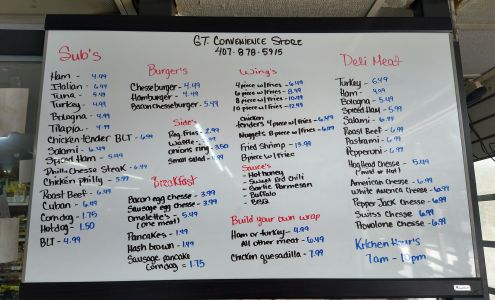 GT. Convenience Store
407-878-5915
Sub's
Ham - 4.99
Italian - 6.49
Tuna - 5.49
Turkey - 4.99
Bologna - 4.99
Tilapia - 4.99
Chicken tender BLT - 6.99
Salami - 6.49
Spiced Ham - 5.49
Philli Cheese Steak - 6.49
Chicken philly - 5.99
Roast Beef - 6.49
Cuban - 6.49
Corndog - 1.75
Hotdog - 1.50
BLT - 4.99
Burger's
Cheseburger - 4.49
Hamburger - 4.49
Bacon cheseburger - 5.49
Side's
Reg fries - 2.99
Waffle -
onions ring - 3.50
small salad - 4.99
Breakfast
Bacon egg cheese - 3.99
Sausage egg cheese - 3.99
Omelette's - 5.49
(one meat)
Pancakes - 1.49
Hash brown - 1.49
Sausage pancake
corndog = 1.75
Wing's
4 piece w/ fries - 6.49
6 piece w/ fries - 8.99
8 piece w/ fries - 10.49
10 piece w/ fries - 12.99
Chicken
tenders 4 piece w/ fries - 6.49
Nuggets 8 piece w/ fries - 6.99
Fried Shrimp - 13.99
8 piece w/ fries
Sauce's
- Hot honey
- Sweet Red Chili
- Garlic Parmesan
- Buffalo
- BBQ
Build your own wrap
Ham or turkey - 4.99
All other meat - 6.49
Chicken quesadilla - 7.99
Deli Meat
Turkey - 6.49
Ham - 4.99
Bologna - 5.49
Spiced Ham - 5.99
Salami - 6.99
Roast Beef - 6.99
Pastrami - 6.99
Pepperoni - 6.99
Hoghead Cheese - 5.49
(mild or Hot)
American Cheese - 6.99
White America Cheese - 6.99
Pepper Jack Cheese - 6.99
Swiss Cheese 6.99
Provolone Cheese - 6.99
Kitchen Hour's
7am - 10pm